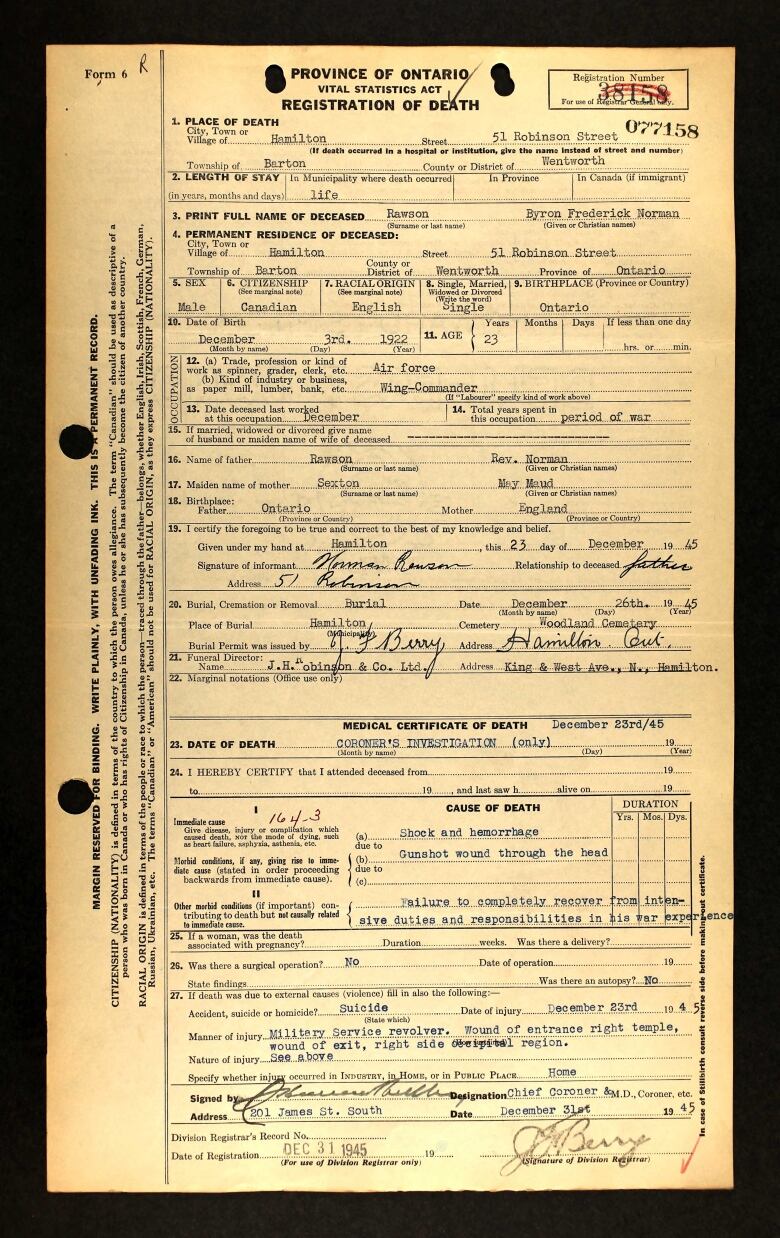 Form 6 R
PROVINCE OF ONTARIO
VITAL STATISTICS ACT
REGISTRATION OF DEATH
Registration Number
38158
For use of Registrar General only.
077158
1. PLACE OF DEATH
City, Town or
Village of Hamilton Street 51 Robinson Street
(If death occurred in a hospital or institution, give the name instead of street and number)
Township of Barton County or District of Wentworth
2. LENGTH OF STAY In Municipality where death occurred In Province In Canada (if immigrant)
(in years, months and days) life
3. PRINT FULL NAME OF DECEASED Rawson Byron Frederick Norman
(Surname or last name) (Given or Christian names)
4. PERMANENT RESIDENCE OF DECEASED:
City, Town or
Village of Hamilton Street 51 Robinson Street
Township of Barton County or District of Wentworth Province of Ontario
5. SEX 6. CITIZENSHIP 7. RACIAL ORIGIN 8. Single, Married, 9. BIRTHPLACE (Province or Country)
(See marginal note) (See marginal note) Widowed or Divorced
(Write the word)
Male Canadian English Single Ontario
10. Date of Birth 11. AGE Years Months Days If less than one day
December 3rd. 1922 23 hrs. or min.
(Month by name) (Day) (Year)
OCCUPATION
12. (a) Trade, profession or kind of
work as spinner, grader, clerk, etc. Air force
(b) Kind of industry or business,
as paper mill, lumber, bank, etc. Wing-Commander
(If "Labourer" specify kind of work above)
13. Date deceased last worked 14. Total years spent in
at this occupation December this occupation period of war
15. If married, widowed or divorced give name
of husband or maiden name of wife of deceased ------------------------------
16. Name of father Rawson Rev. Norman
(Surname or last name) (Given or Christian names)
17. Maiden name of mother Sexton May Maud
(Surname or last name) (Given or Christian names)
18. Birthplace:
Father Ontario Mother England
(Province or Country) (Province or Country)
19. I certify the foregoing to be true and correct to the best of my knowledge and belief.
Given under my hand at Hamilton, this 23 day of December 1945
Signature of informant Norman Rawson Relationship to deceased father
Address 51 Robinson
20. Burial, Cremation or Removal Burial Date December 26th. 1945
(Month by name) (Day) (Year)
Place of Burial Hamilton Cemetery Woodland Cemetery
(Municipality)
Burial Permit was issued by J. F. Berry Address Hamilton Ont.
21. Funeral Director:
Name J.H. Robinson & Co. Ltd. Address King & West Ave., N., Hamilton.
22. Marginal notations (Office use only)
MEDICAL CERTIFICATE OF DEATH December 23rd/45
23. DATE OF DEATH CORONER'S INVESTIGATION (only) 19
(Month by name) (Day) (Year)
24. I HEREBY CERTIFY that I attended deceased from 19
to 19 , and last saw h alive on 19
I CAUSE OF DEATH DURATION
Yrs. Mos. Dys.
Immediate cause 164-3
Give disease, injury or complication which
caused death, NOT the mode of dying, such
as heart failure, asphyxia, asthenia, etc.
(a) Shock and hemorrhage
due to
Morbid conditions, if any, giving rise to imme-
diate cause (stated in order proceeding
backwards from immediate cause).
(b) Gunshot wound through the head
due to
(c)
II
Other morbid conditions (if important) con-
tributing to death but not causally related
to immediate cause.
Failure to completely recover from inten-
sive duties and responsibilities in his war experience
25. If a woman, was the death
associated with pregnancy? Duration weeks. Was there a delivery?
26. Was there a surgical operation? No Date of operation 19
State findings Was there an autopsy? No
27. If death was due to external causes (violence) fill in also the following:—
Accident, suicide or homicide? Suicide Date of injury December 23rd 1945
(State which)
Manner of injury Military Service revolver. Wound of entrance right temple,
wound of exit, right side occipital region.
Nature of injury See above
Specify whether injury occurred in INDUSTRY, in HOME, or in PUBLIC PLACE. Home
Signed by Designation Chief Coroner & M.D., Coroner, etc.
Address 201 James St. South Date December 31st 1945
Division Registrar's Record No.
Date of Registration DEC 31 1945 19
(For use of Division Registrar only)
J F Berry
(Signature of Division Registrar)
MARGIN RESERVED FOR BINDING. WRITE PLAINLY, WITH UNFADING INK. THIS IS A PERMANENT RECORD.
CITIZENSHIP (NATIONALITY) is defined in terms of the country to which the person owes allegiance. The term "Canadian" should be used as descriptive of a
person who was born in Canada or who has rights of Citizenship in Canada, unless he or she has subsequently become the citizen of another country.
RACIAL ORIGIN is defined in terms of the people or race to which the person—traced through the father—belongs, whether English, Irish, Scottish, French, German,
Russian, Ukrainian, etc. The terms "Canadian" or "American" should not be used for RACIAL ORIGIN, as they express CITIZENSHIP (NATIONALITY).
In case of Stillbirth consult reverse side before making out certificate.